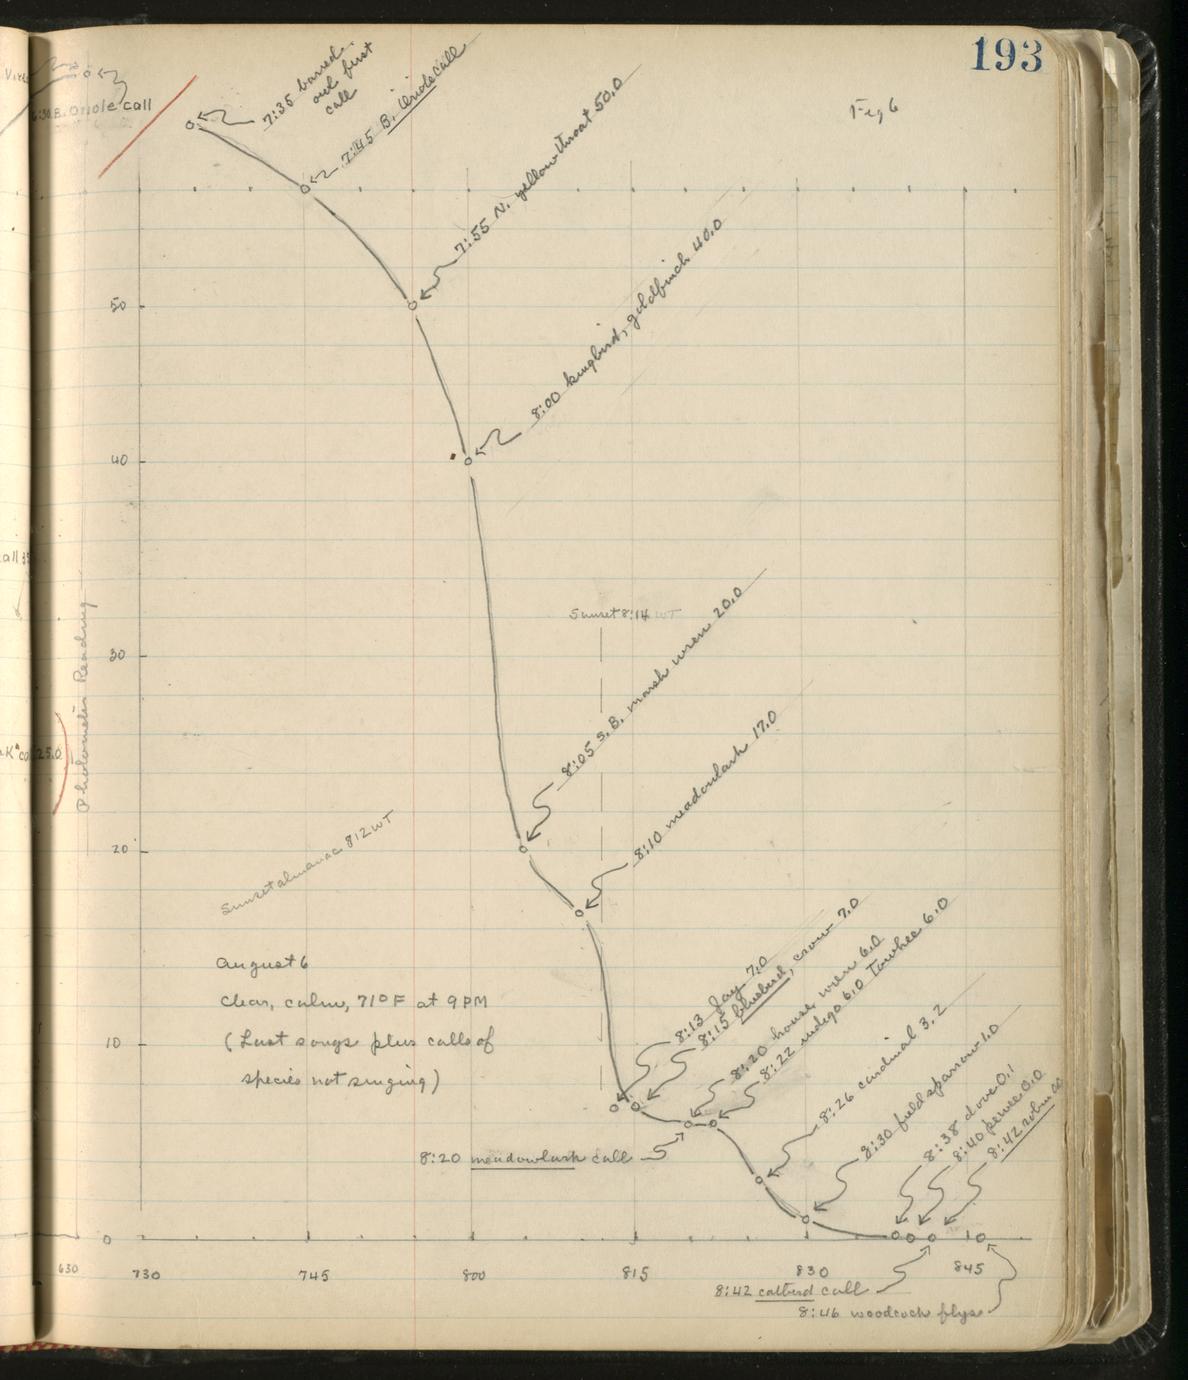 193
Fig 6
B. Oriole call
7:35 barred
owl first
call
7:45 B. Oriole call
7:55 N. yellowthroat 50.0
8:00 kingbird, goldfinch 40.0
50
40
Sunset 8:14 WT
30
Photometer Reading
25.0
8:05 S.B. marsh wren 20.0
8:10 meadowlark 17.0
20
Sunset almanac 812 WT
August 6
Clear, calm, 71° F at 9 PM
(Last songs plus calls of
species not singing)
10
8:13 Jay 7.0
8:15 bluebird, crow 7.0
8:20 house wren 6.0
8:22 indigo 6.0 Towhee 6.0
8:26 cardinal 3.2
8:30 field sparrow 1.0
8:38 dove 0.1
8:40 pewee 0.0
8:42 robin 00
8:20 meadowlark call
0
630
730
745
800
815
830
845
8:42 catbird call
8:46 woodcock flys